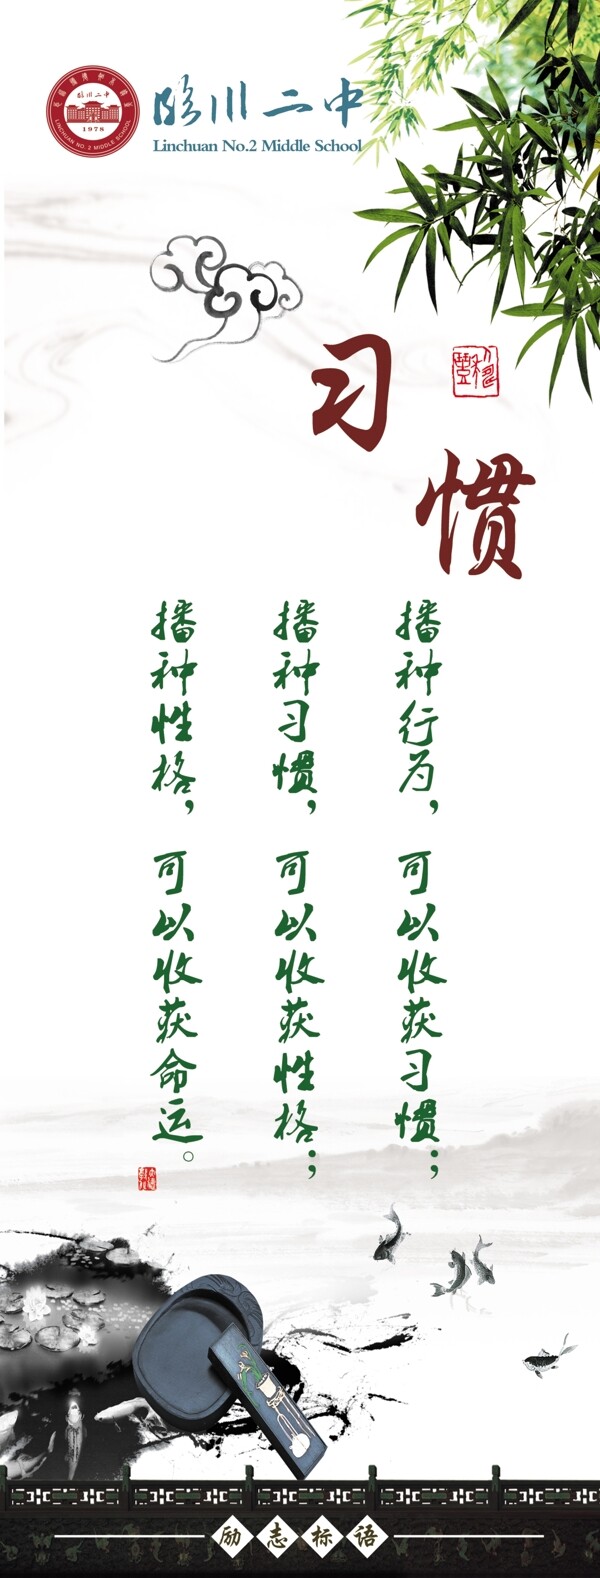 临川二中
Linchuan No.2 Middle School
临川二中
1978
LINCHUAN NO. 2 MIDDLE SCHOOL
习惯
播种行为，可以收获习惯；
播种习惯，可以收获性格；
播种性格，可以收获命运。
励志标语